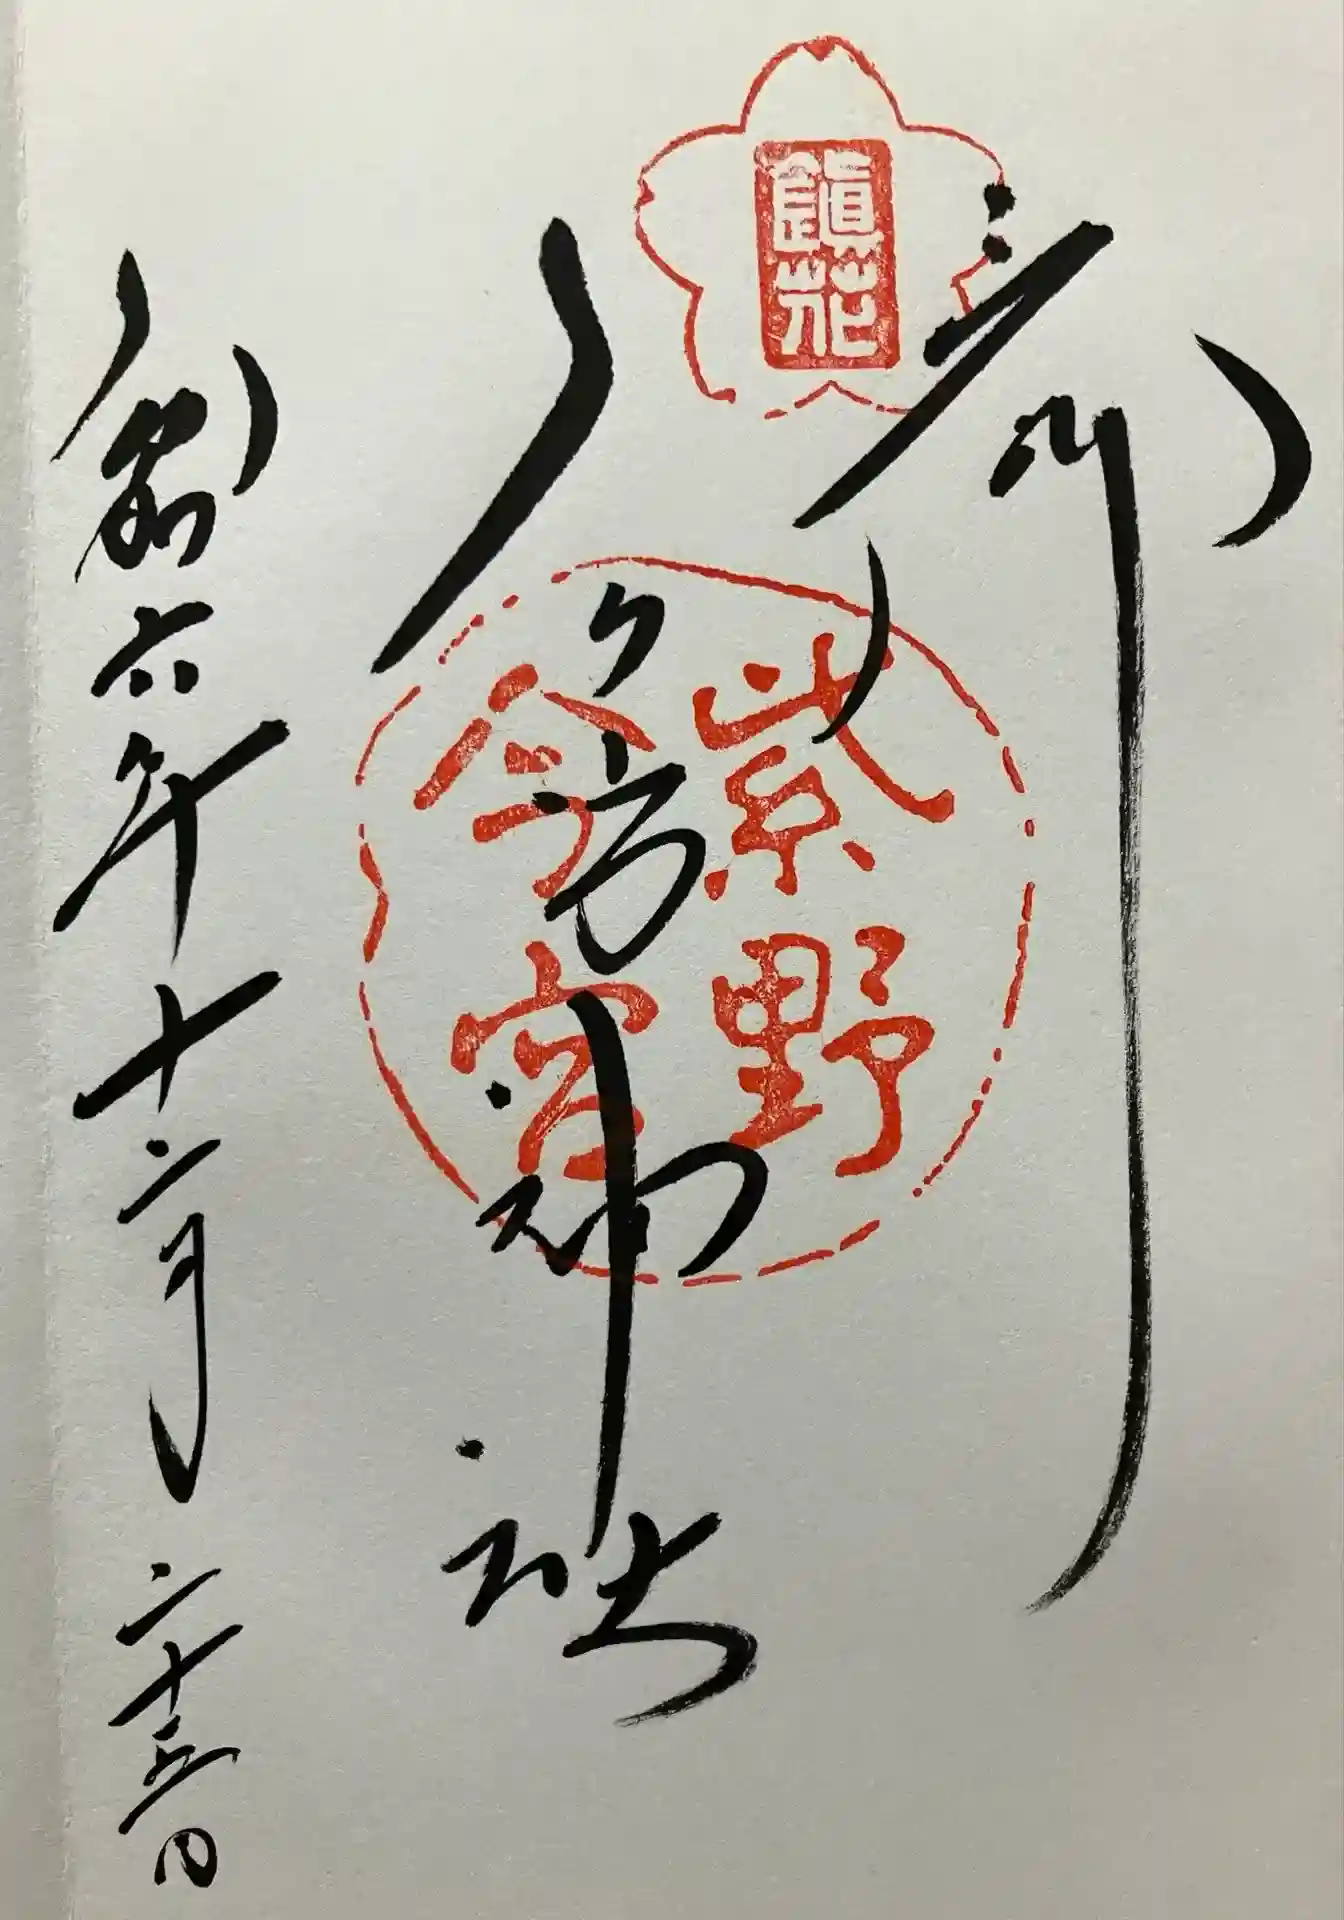 鎮花
紫野
今宮
今宮神社
令和六年十二月二十五日